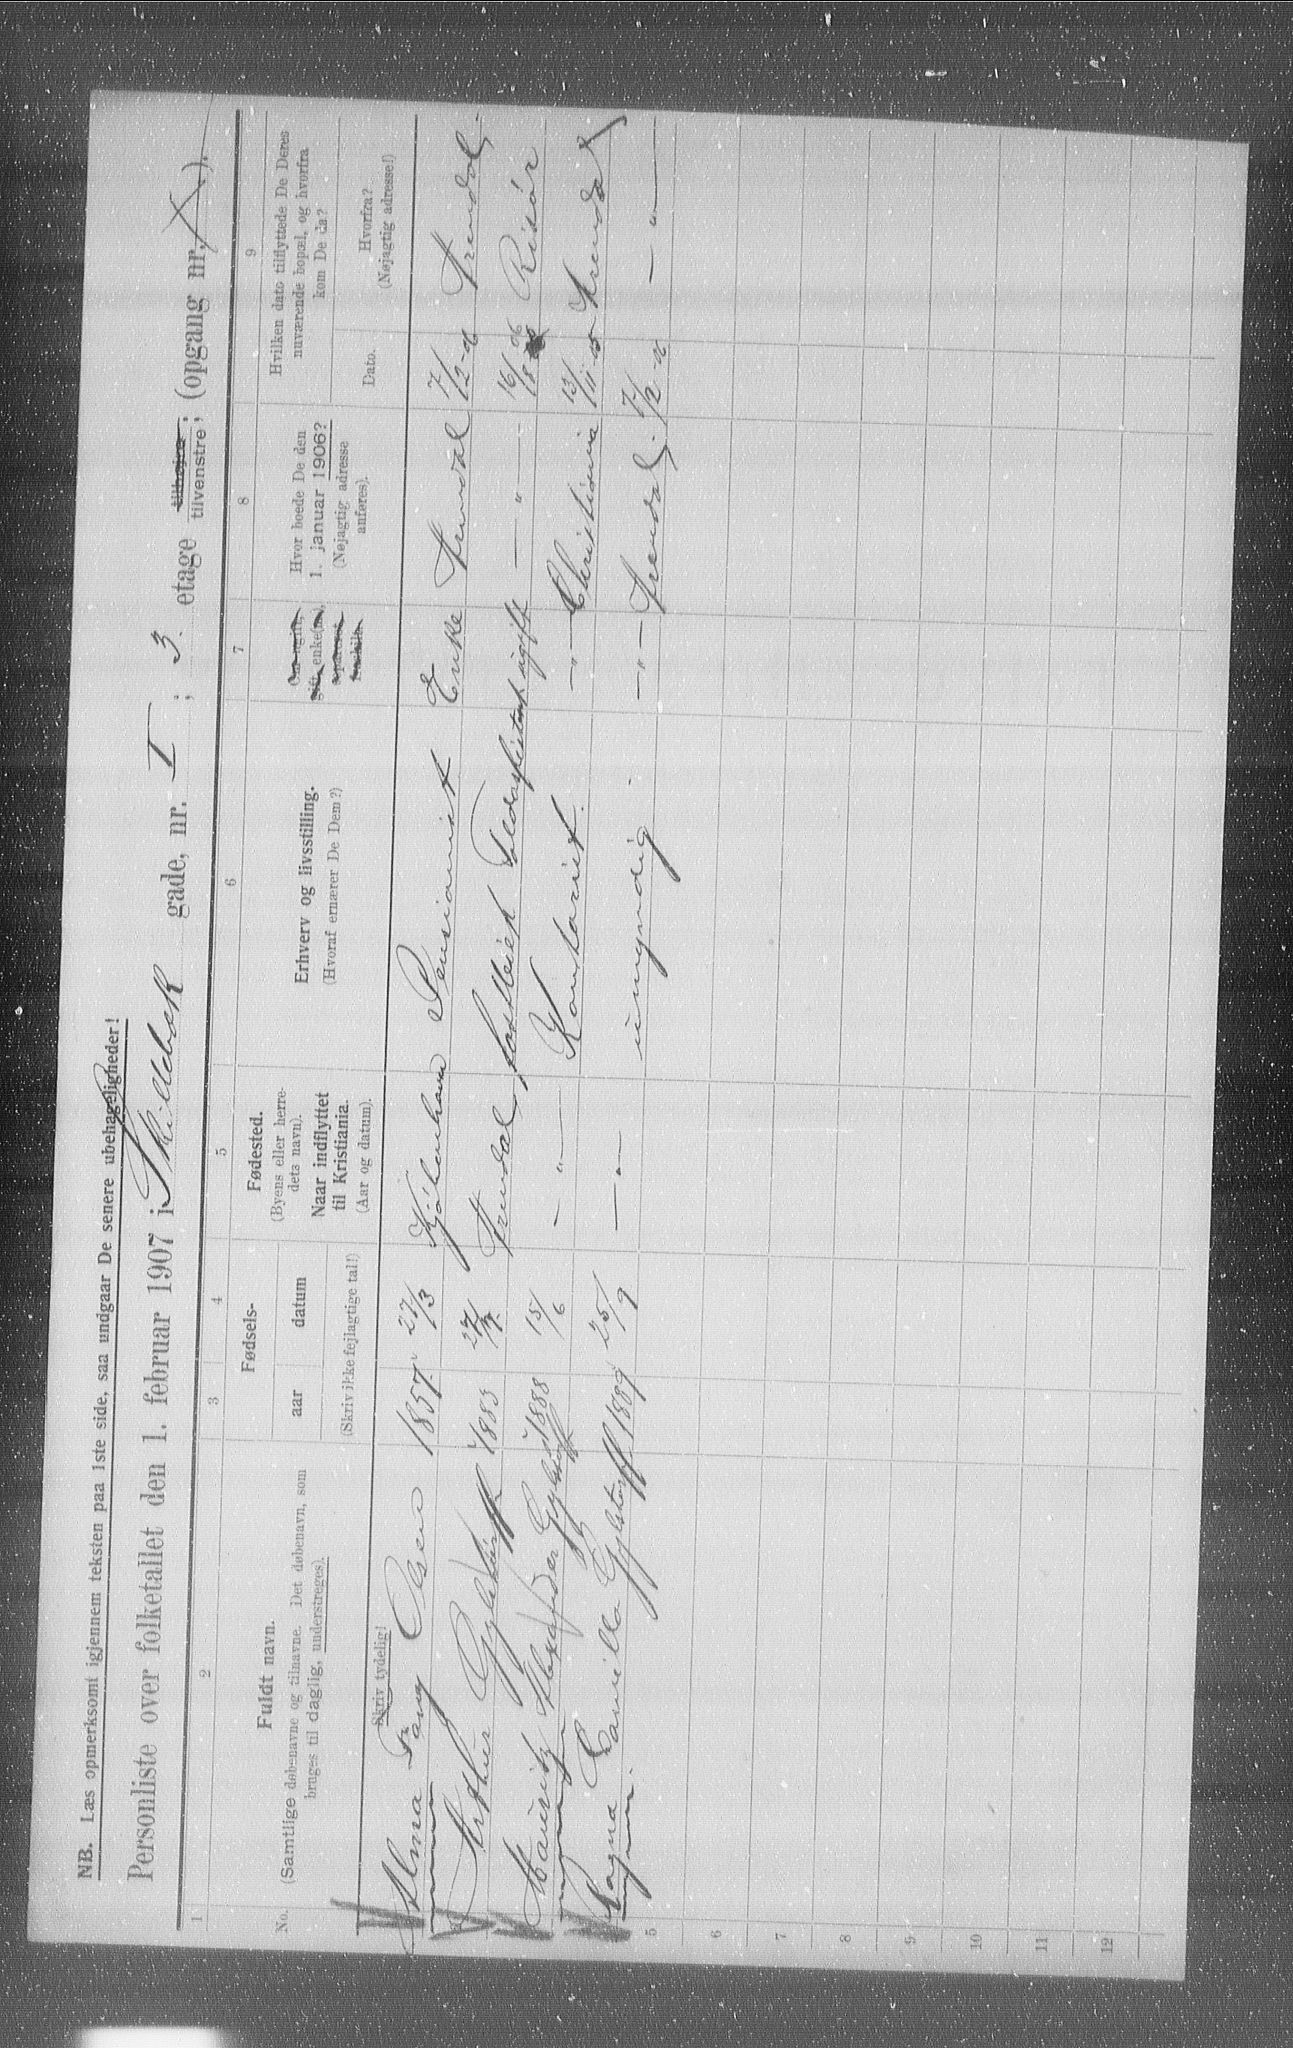 NB. Læs opmerksomt igjennem teksten paa 1ste side, saa undgaar De senere ubehageligheder!
Personliste over folketallet den 1. februar 1907 i Skillebæk gade, nr. I ; 3. etage tilhøjre, tilvenstre, (opgang nr. ).
1 2 3 4 5 6 7 8 9
No. Fuldt navn. (Samtlige døbenavne og tilnavne. Det døbenavn, som bruges til daglig, understreges). Skriv tydelig!
Fødsels- aar datum (Skriv ikke fejlagtige tal!)
Fødested. (Byens eller herredets navn). Naar indflyttet til Kristiania. (Aar og datum).
Erhverv og livsstilling. (Hvoraf ernærer De Dem?)
Om ugift, gift, enke(m), separeret, fraskilt.
Hvor boede De den 1. januar 1906? (Nøjagtig adresse anføres).
Hvilken dato tilflyttede De Deres nuværende bopæl, og hvorfra kom De da?
Dato. Hvorfra? (Nøjagtig adresse!)
Alma Olsen 1857 27/3 Kjöbenhavn Pensionist Enke Arendal 7/2- Arendal.
Arthur Gylstorff 1883 Arendal Toldassistent ugift — " — 16/8 06 Risör
Mauritz Alexander Gylstorff 1888 15/6 — " — Kontorist — " — Christiania 13/11 Arendal
Ragna Camilla Gylstorff 1889 25/9 — " — umyndig — " — Arendal. 7/2- — " —
5
6
7
8
9
10
11
12